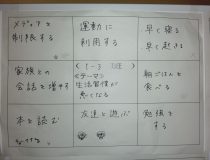 メディアを
制限する
運動に
利用する
早く寝る
早く起きる
家族との
会話を増やす
(1-3 2班)
<テーマ>
生活習慣が
悪くなる
朝ごはんを
食べる
本を読む
友達と遊ぶ
勉強を
する